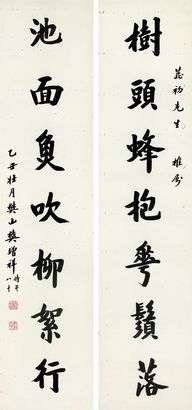 樹頭蜂抱華鬚落
初先生 雅屬
池面魚吹柳絮行
乙丑壯月樊山樊增祥時年八十